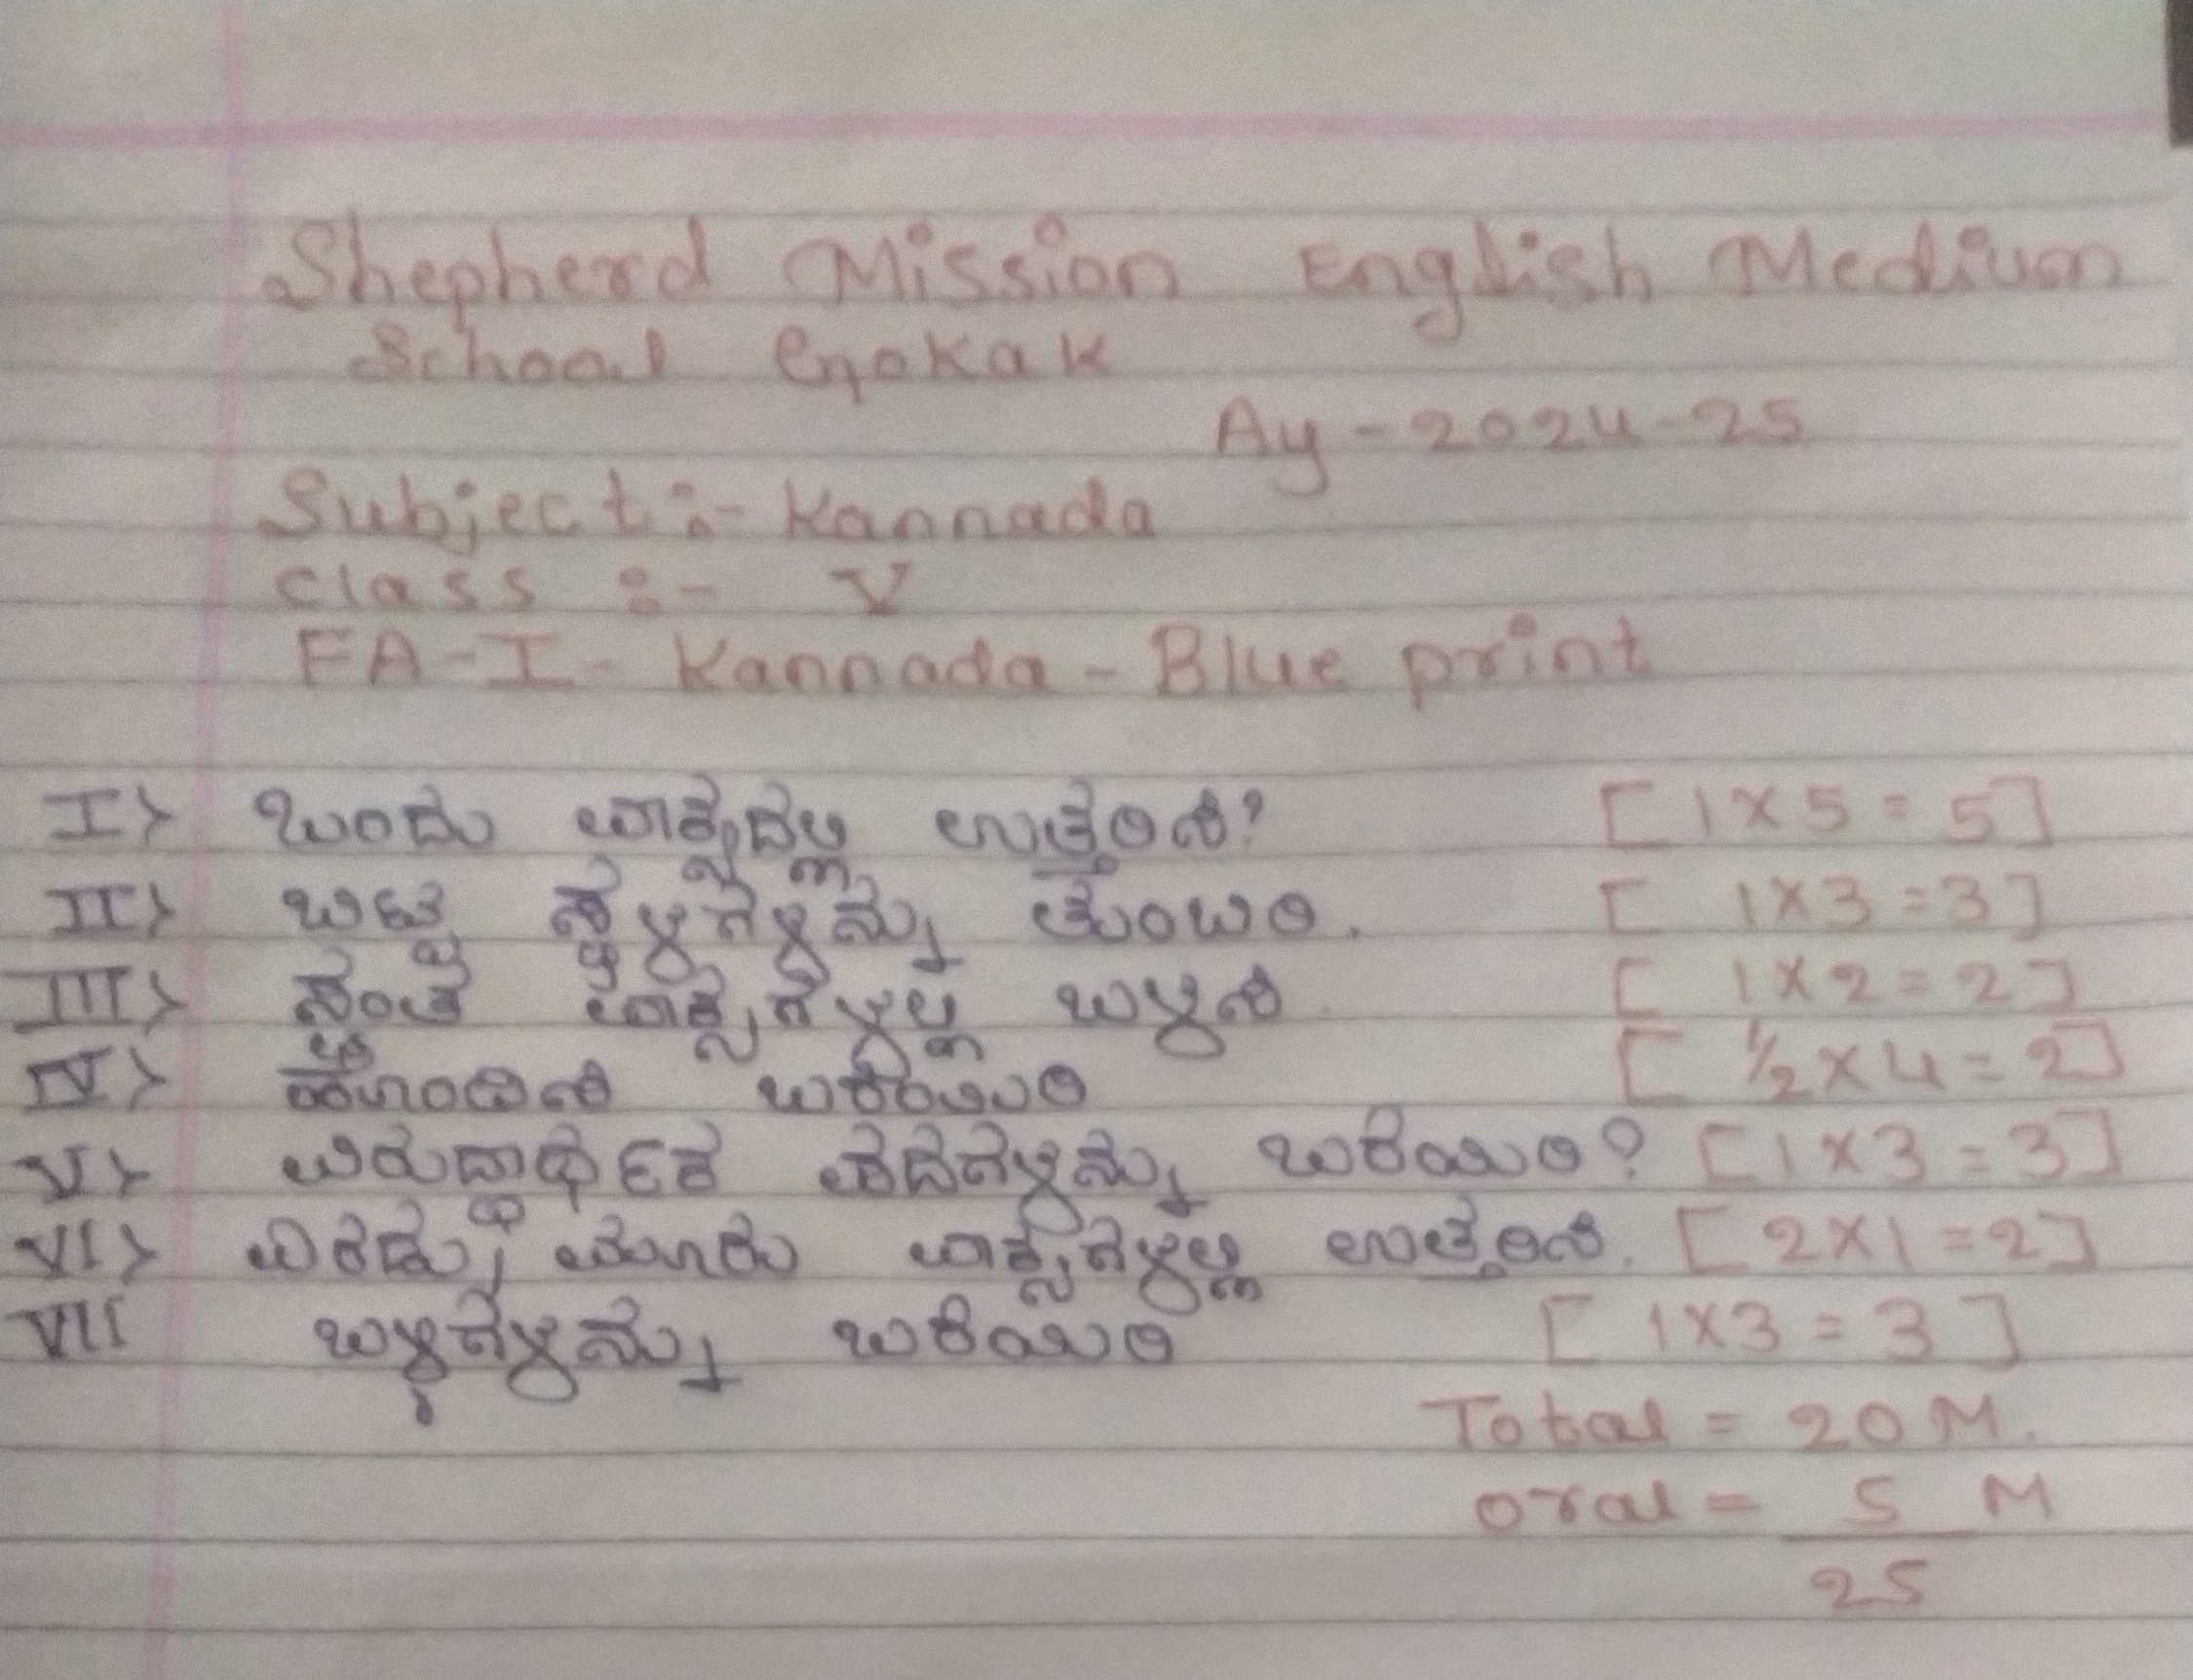 Shepherd Mission English Medium
School Gokak
Ay - 2024-25
Subject :- Kannada
Class :- V
FA-I- Kannada - Blue print
I> ಒಂದು ವಾಕ್ಯದಲ್ಲಿ ಉತ್ತರಿಸಿ? [1×5=5]
II> ಬಿಟ್ಟ ಸ್ಥಳಗಳನ್ನು ತುಂಬಿರಿ. [1×3=3]
III> ಸ್ವಂತ ವಾಕ್ಯಗಳಲ್ಲಿ ಬಳಸಿ. [1×2=2]
IV> ಹೊಂದಿಸಿ ಬರೆಯಿರಿ [½×4=2]
V> ವಿರುದ್ಧಾರ್ಥಕ ಪದಗಳನ್ನು ಬರೆಯಿರಿ? [1×3=3]
VI> ಎರಡು/ ಮೂರು ವಾಕ್ಯಗಳಲ್ಲಿ ಉತ್ತರಿಸಿ. [2×1=2]
VII ಒಳ್ಳಗಳನ್ನು ಬರೆಯಿರಿ [1×3=3]
Total = 20 M.
Oral = 5 M
25